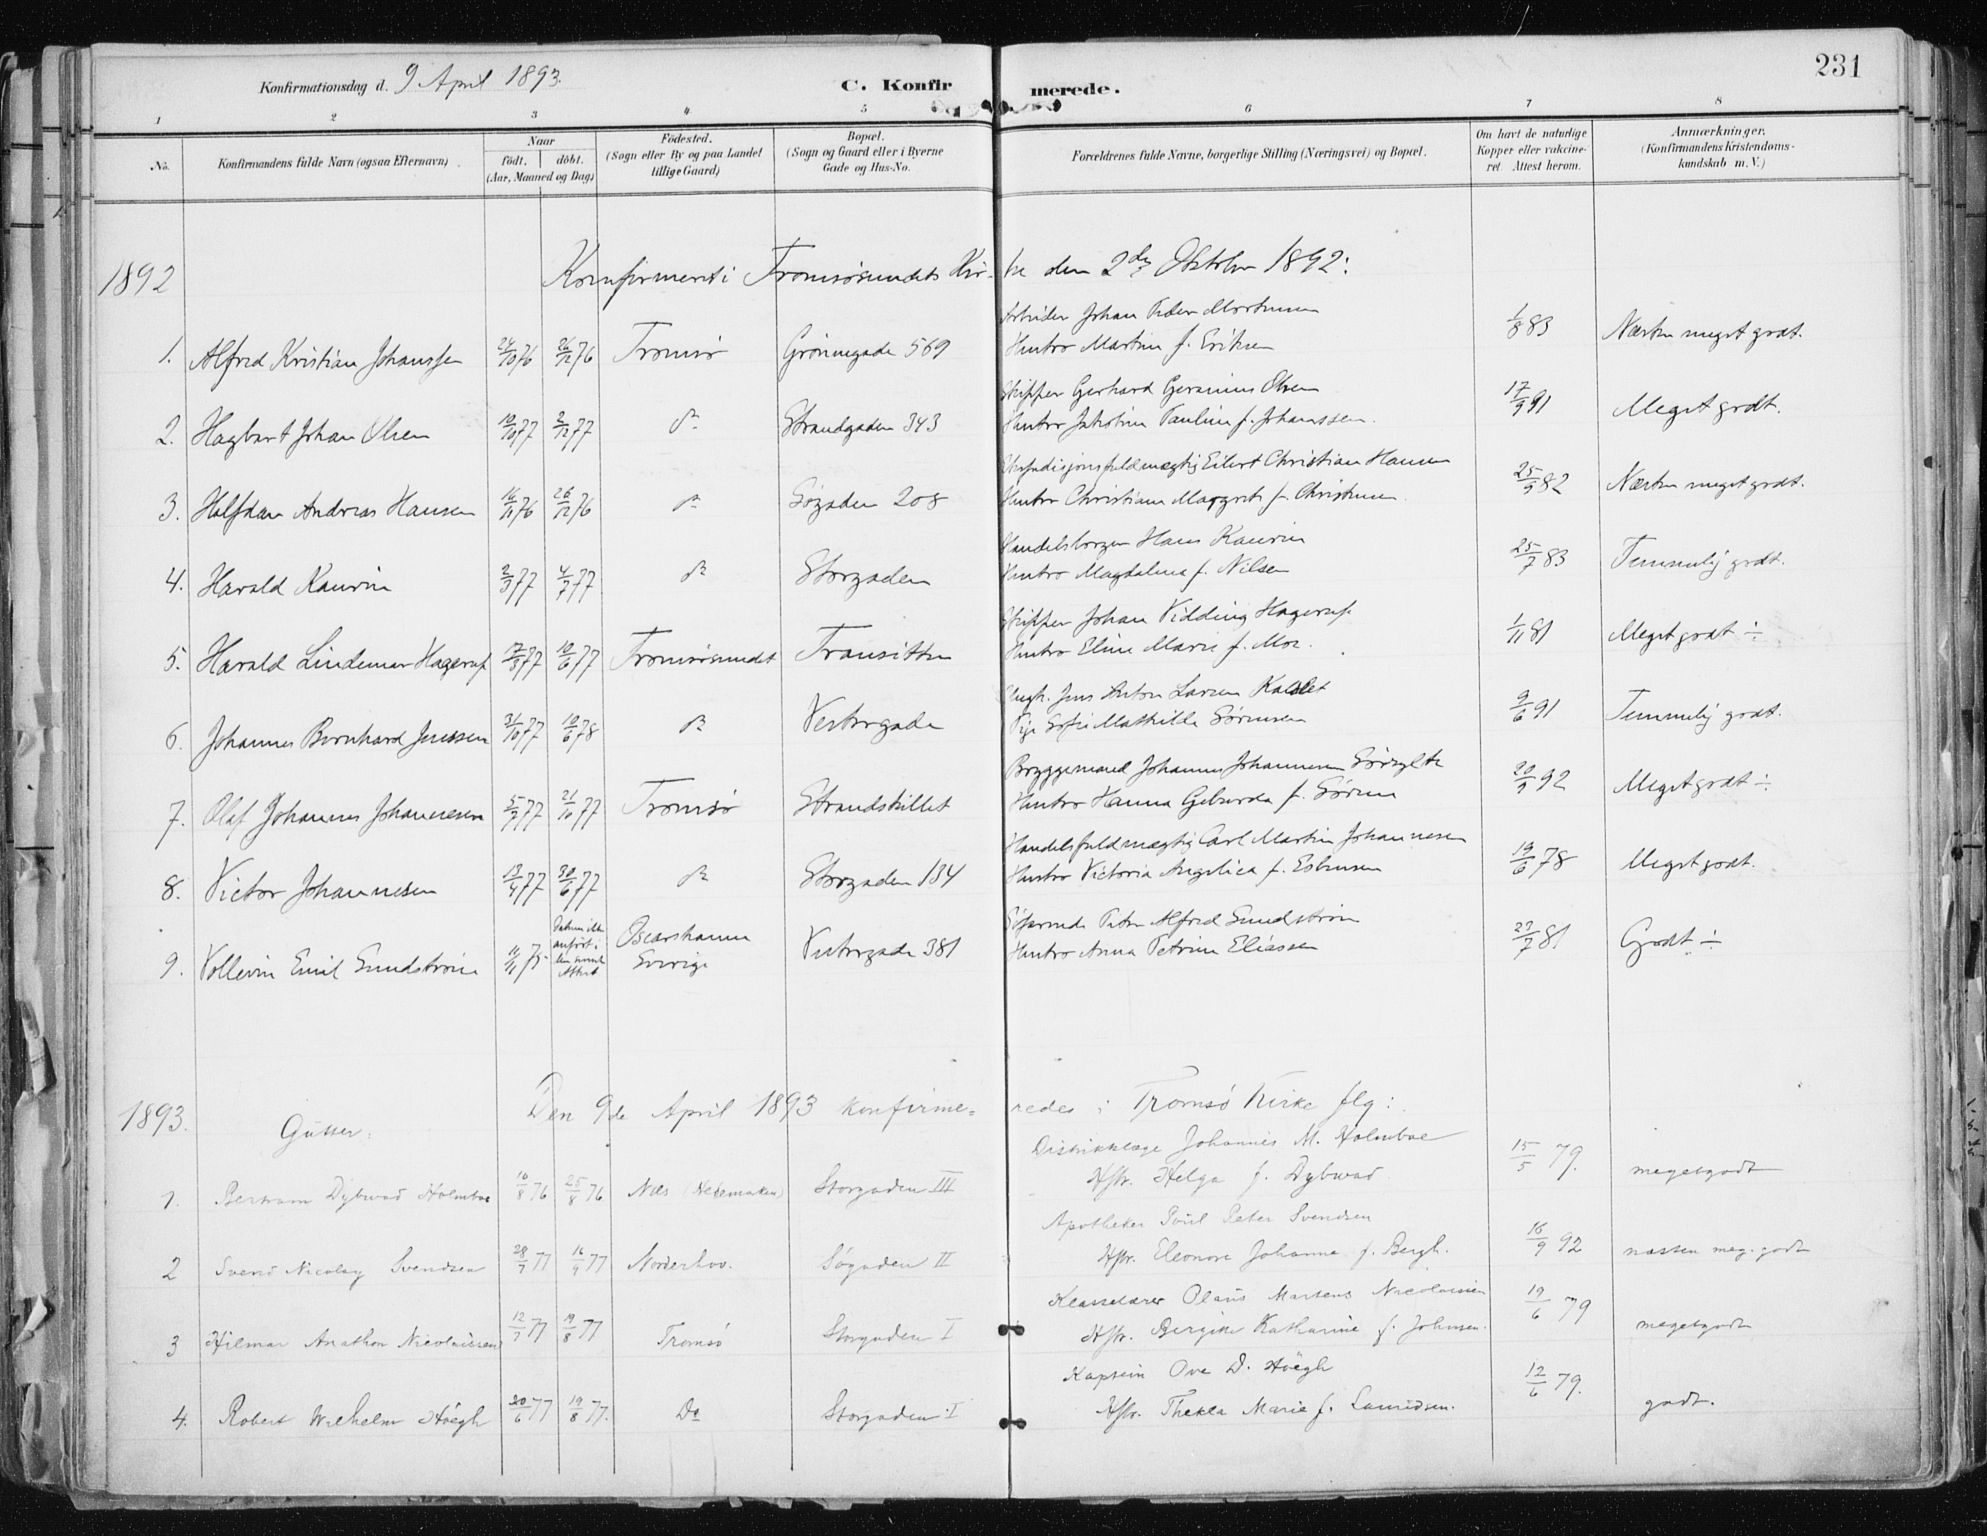 Konfirmationsdag d. 9 April 1893.
C. Konfirmerede.
231
1 2 3 4 5 6 7 8
No.
Konfirmandens fulde Navn (ogsaa Efternavn)
Naar
født. døbt.
(Aar, Maaned og Dag)
Fødested.
(Sogn eller By og paa Landet
tillige Gaard)
Bopæl.
(Sogn og Gaard eller i Byerne
Gade og Hus-No.
Forældrenes fulde Navne, borgerlige Stilling (Næringsvei) og Bopæl.
Om havt de naturlige
Kopper eller vakcine-
ret Attest herom.
Anmærkninger.
(Konfirmandens Kristendoms-
kundskab m. V.)
1892 Konfirmert i Tromsøsundets Kirke den 2den Oktober 1892:
Arbeider Johan Peder Mortensen
1. Alfred Kristian Johanssen 24/10 76 26/12 76 Tromsø Grønnegade 569 Hustro Martine f. Eriksen 1/8 83 Næsten meget godt.
Skipper Gerhard Olsen
2. Hagbart Johan Olsen 10/10 77 2/12 77 do Strandgaden 343 Hustro Jakobine Pauline f. Johanssen. 17/9 91 Meget godt.
Eilert Christian Hansen
3. Halfdan Andreas Hansen 16/11 76 26/12 76 do Søgaden 208 Hustro Christiane Margrete f. Christensen. 25/9 82 Næsten meget godt.
Handelsborger Hans Kaurin
4. Harald Kaurin 2/3 77 4/7 77 do Storgaden Hustro Magdalena f. Nilsen 25/7 83 Temmelig godt.
Skipper Johan Vidding Hagerup
5. Harald Lindeman Hagerup 17/3 77 10/6 77 Tromsøsundet Transitten Hustro Eline Marie f. Moe. 1/11 81 Meget godt ÷
Ungk. Jens Anton Larsen
6. Johannes Bernhard Jenssen 31/10 77 10/6 78 do Vestregade Pige Sofie Mathilde Sørensen 9/6 91 Temmelig godt.
Bryggemand Johannes Johannesen
7. Olaf Johannes Johannesen 5/7 77 21/10 77 Tromsø Strandskillet Hustro Hanna f. 20/9 92 Meget godt ÷
Handelsfuldmægtig Carl Martin Johannesen
8. Victor Johannesen 13/4 77 30/6 77 do Storgaden 134 Hustro Victoria Angelica f. Esbensen 19/6 78 Meget godt.
Søfarende Peter Alfred Sundstrøm
9. Vollevin Emil Sundstrøm 11/11 75 Datum ikke anført i Attest Oscarshamn Sverige Vestregade 381 Hustro Anna Petrine Eliassen 27/7 81 Godt ÷
1893. Gutter: Den 9de April 1893 konfirmeredes i Tromsø Kirke flg:
Distriktslæge Johannes M. Holmboe
1. Bertram Dybwad Holmboe 10/8 76 25/8 76 Næs (Hedemarken) Storgaden III Hstr. Helga f. Dybwad. 15/5 79. megetgodt
Apotheker Poul Peter Svendsen
2 Svend Nicolay Svendsen 28/7 77 16/9 77 Norderhov. Søgaden II Hstr. Eleonore Johanne f. Bergh. 16/9 92 næsten meg. godt
Klasselærer Olaus Martens Nicolaissen
3 Hilmar Anathon Nicolaissen 12/7 77 19/8 77 Tromsø Storgaden I Hstr. Bergitte Katharine f. Johnsen. 19/6 79 megetgodt
Kaptein Ove D. Høegh
4. Robert Wilhelm Høegh 20/6 77 19/8 77. Do Storgaden I Hstr. Thekla Marie f. Lauridsen. 12/6 79. godt.